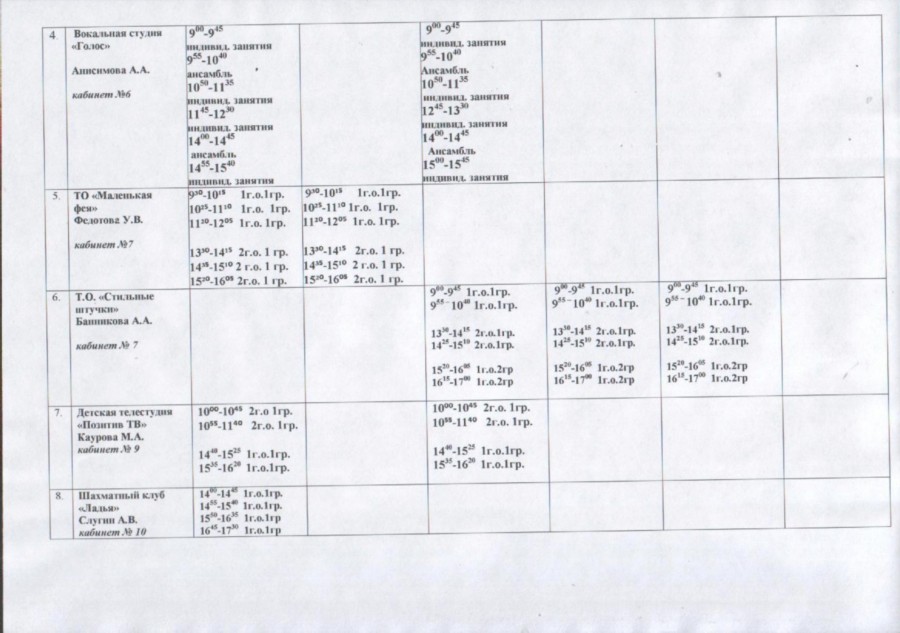 4. Вокальная студия
«Голос»
Анисимова А.А.
кабинет №6
9⁰⁰-9⁴⁵
индивид. занятия
9⁵⁵-10⁴⁰
ансамбль
10⁵⁰-11³⁵
индивид. занятия
11⁴⁵-12³⁰
индивид. занятия
14⁰⁰-14⁴⁵
ансамбль
14⁵⁵-15⁴⁰
индивид. занятия
9⁰⁰-9⁴⁵
индивид. занятия
9⁵⁵-10⁴⁰
Ансамбль
10⁵⁰-11³⁵
индивид. занятия
12⁴⁵-13³⁰
индивид. занятия
14⁰⁰-14⁴⁵
Ансамбль
15⁰⁰-15⁴⁵
индивид. занятия
5. ТО «Маленькая
фея»
Федотова У.В.
кабинет №7
9³⁰-10¹⁵ 1г.о.1гр.
10²⁵-11¹⁰ 1г.о. 1гр.
11²⁰-12⁰⁵ 1г.о. 1гр.
13³⁰-14¹⁵ 2г.о. 1 гр.
14²⁵-15¹⁰ 2 г.о. 1 гр.
15²⁰-16⁰⁵ 2г.о. 1 гр.
9³⁰-10¹⁵ 1г.о.1гр.
10²⁵-11¹⁰ 1г.о. 1гр.
11²⁰-12⁰⁵ 1г.о. 1гр.
13³⁰-14¹⁵ 2г.о. 1 гр.
14²⁵-15¹⁰ 2 г.о. 1 гр.
15²⁰-16⁰⁵ 2г.о. 1 гр.
6. Т.О. «Стильные
штучки»
Банникова А.А.
кабинет № 7
9⁰⁰-9⁴⁵ 1г.о.1гр.
9⁵⁵⁻10⁴⁰ 1г.о.1гр.
13³⁰-14¹⁵ 2г.о.1гр.
14²⁵-15¹⁰ 2г.о.1гр.
15²⁰-16⁰⁵ 1г.о.2гр
16¹⁵-17⁰⁰ 1г.о.2гр
9⁰⁰-9⁴⁵ 1г.о.1гр.
9⁵⁵⁻10⁴⁰ 1г.о.1гр.
13³⁰-14¹⁵ 2г.о.1гр.
14²⁵-15¹⁰ 2г.о.1гр.
15²⁰-16⁰⁵ 1г.о.2гр
16¹⁵-17⁰⁰ 1г.о.2гр
9⁰⁰-9⁴⁵ 1г.о.1гр.
9⁵⁵⁻10⁴⁰ 1г.о.1гр.
13³⁰-14¹⁵ 2г.о.1гр.
14²⁵-15¹⁰ 2г.о.1гр.
15²⁰-16⁰⁵ 1г.о.2гр
16¹⁵-17⁰⁰ 1г.о.2гр
7. Детская телестудия
«Позитив ТВ»
Каурова М.А.
кабинет № 9
10⁰⁰-10⁴⁵ 2г.о 1гр.
10⁵⁵-11⁴⁰ 2г.о. 1гр.
14⁴⁰-15²⁵ 1г.о.1гр.
15³⁵-16²⁰ 1г.о.1гр.
10⁰⁰-10⁴⁵ 2г.о. 1гр.
10⁵⁵-11⁴⁰ 2г.о. 1гр.
14⁴⁰-15²⁵ 1г.о.1гр.
15³⁵-16²⁰ 1г.о.1гр.
8. Шахматный клуб
«Ладья»
Слугин А.В.
кабинет № 10
14⁰⁰-14⁴⁵ 1г.о.1гр.
14⁵⁵-15⁴⁰ 1г.о.1гр.
15⁵⁰-16³⁵ 1г.о.1гр
16⁴⁵-17³⁰ 1г.о.1гр